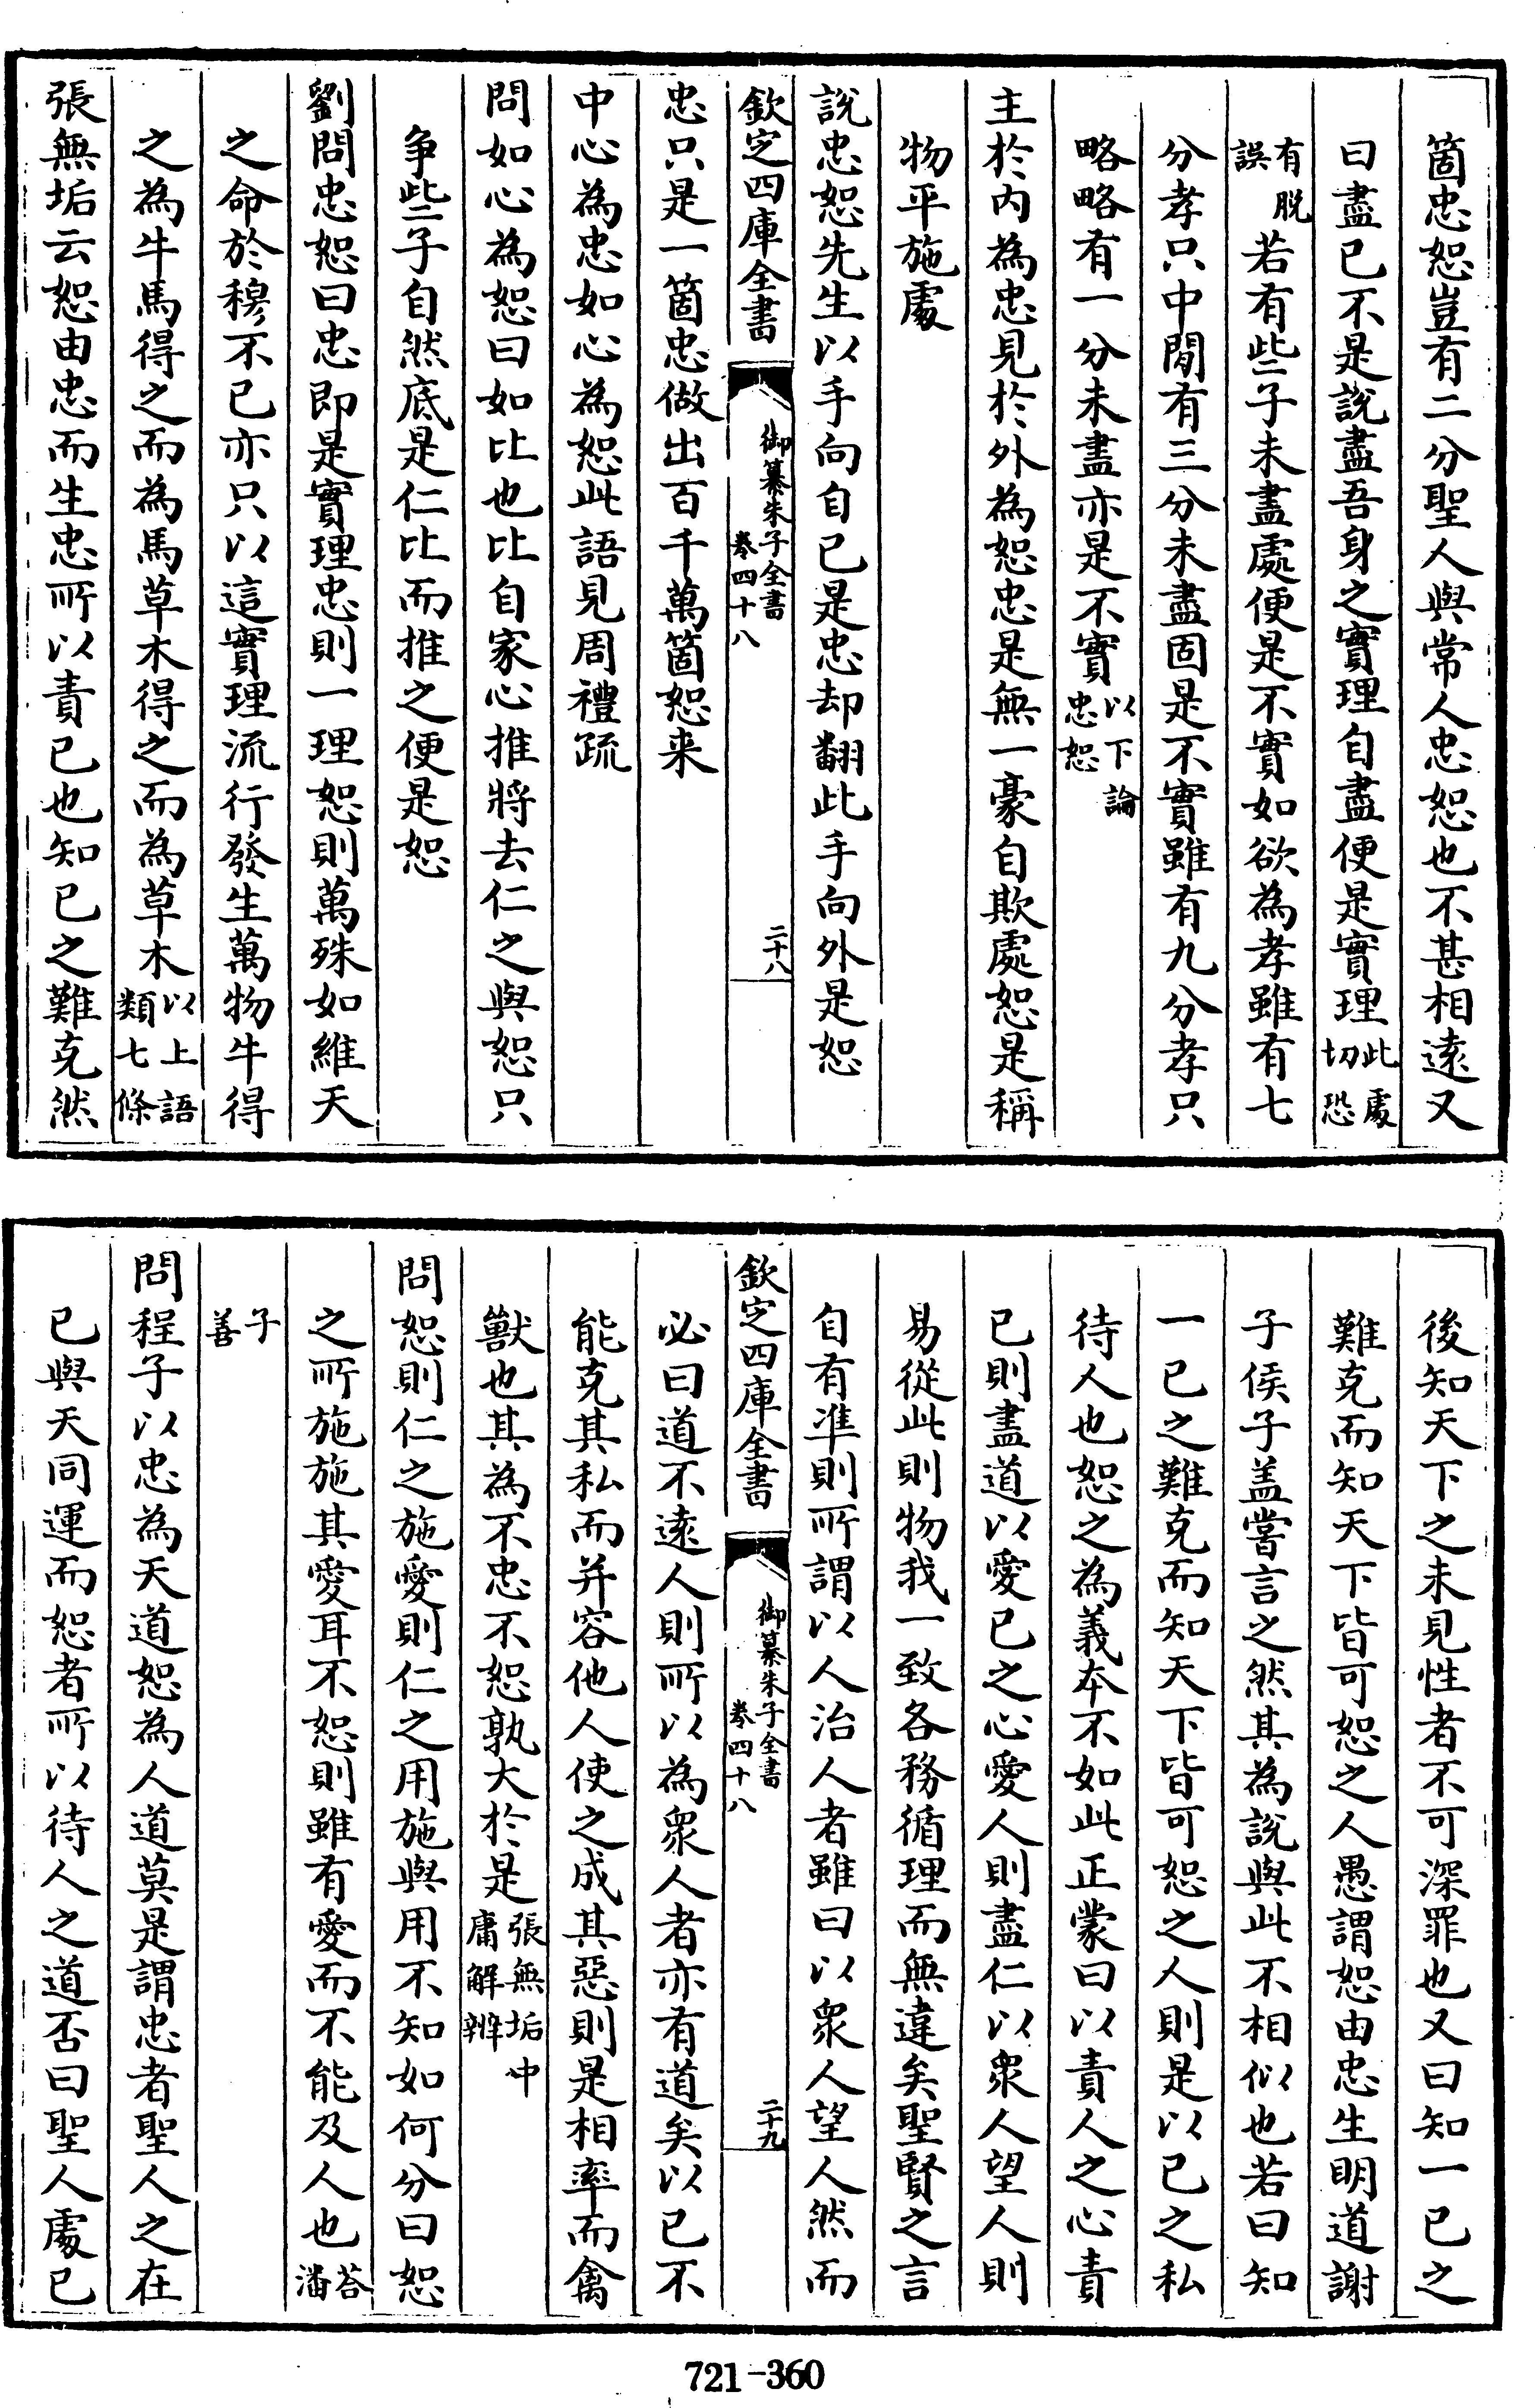 箇忠恕豈有二分聖人與常人忠恕也不甚相逺又
曰盡已不是說盡吾身之實理自盡便是實理此處切恐
有脱誤若有些子未盡處便是不實如欲為孝雖有七
分孝只中間有三分未盡固是不實雖有九分孝只
略略有一分未盡亦是不實以下論忠恕
主於内為忠見於外為恕忠是無一豪自欺處恕是稱
物平施處
說忠恕先生以手向自已是忠却翻此手向外是恕
欽定四庫全書
御纂朱子全書
卷四十八
二十八
忠只是一箇忠做出百千萬箇恕来
中心為忠如心為恕此語見周禮疏
問如心為恕曰如比也比自家心推將去仁之與恕只
争些子自然底是仁比而推之便是恕
劉問忠恕曰忠即是實理忠則一理恕則萬殊如維天
之命於穆不已亦只以這實理流行發生萬物牛得
之為牛馬得之而為馬草木得之而為草木以上語類七條
張無垢云恕由忠而生忠所以責已也知已之難克然
後知天下之未見性者不可深罪也又曰知一已之
難克而知天下皆可恕之人愚謂恕由忠生明道謝
子侯子盖嘗言之然其為說與此不相似也若曰知
一已之難克而知天下皆可恕之人則是以已之私
待人也恕之為義本不如此正蒙曰以責人之心責
已則盡道以愛已之心愛人則盡仁以衆人望人則
易從此則物我一致各務循理而無違矣聖賢之言
自有準則所謂以人治人者雖曰以衆人望人然而
欽定四庫全書
御纂朱子全書
卷四十八
二十九
必曰道不逺人則所以為衆人者亦有道矣以已不
能克其私而并容他人使之成其惡則是相率而禽
獸也其為不忠不恕孰大於是張無垢中庸解辨
問恕則仁之施愛則仁之用施與用不知如何分曰恕
之所施施其愛耳不恕則雖有愛而不能及人也荅潘
子善
問程子以忠為天道恕為人道莫是謂忠者聖人之在
已與天同運而恕者所以待人之道否曰聖人處已
721-360